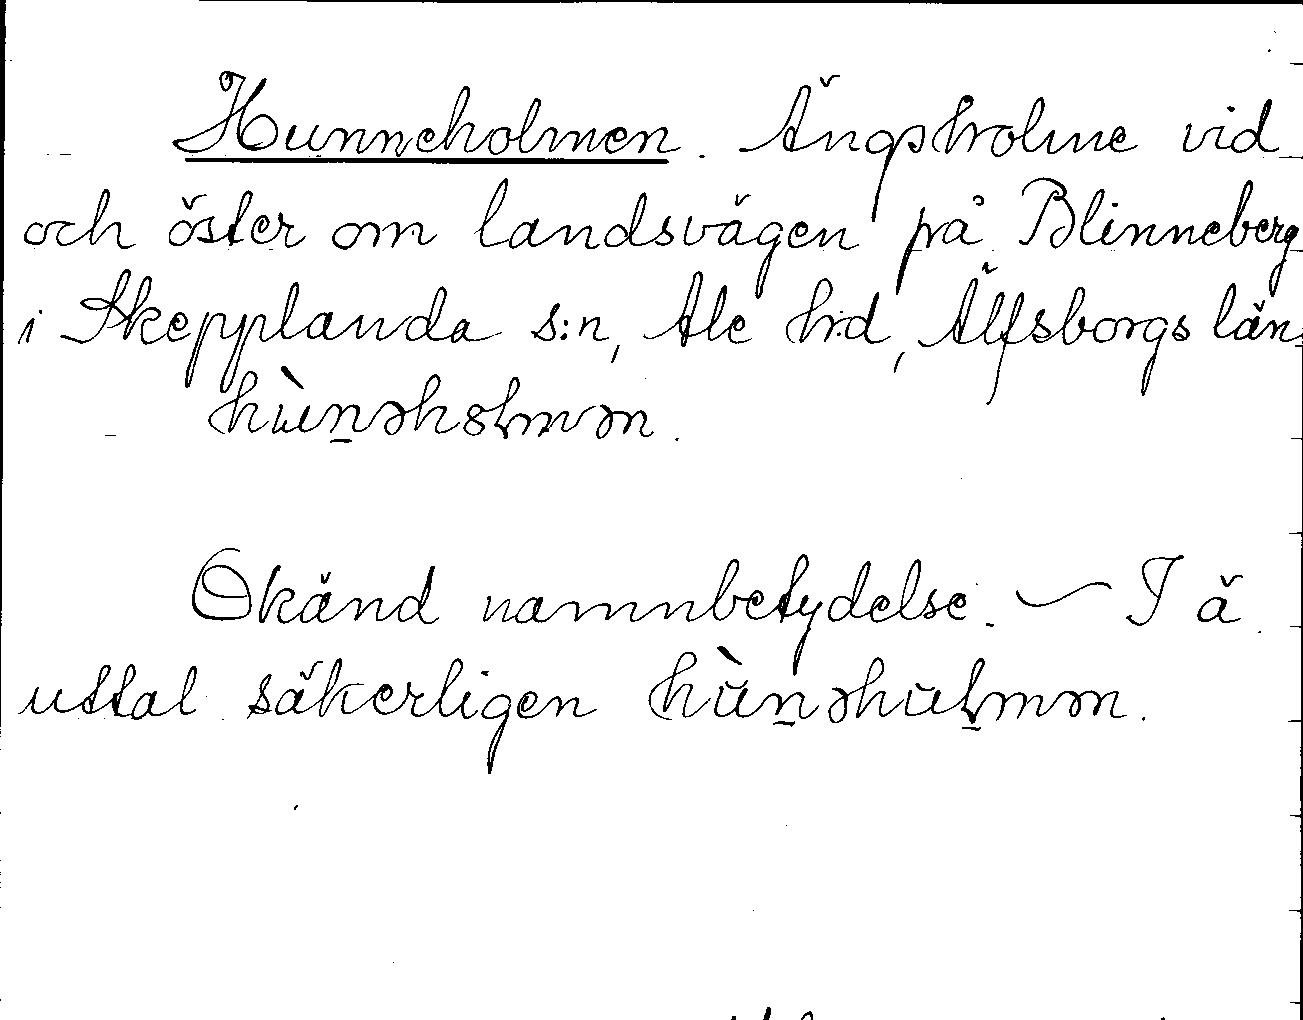 Hunneholmen. Ängsholme vid
och öster om landsvägen på Blinneberg
i Skepplanda s:n, Ale hd, Älfsborgs län.
hùn̠əhɷlmən.
Okänd namnbetydelse. — I ä
uttal säkerligen hùn̠əhul̠mən.